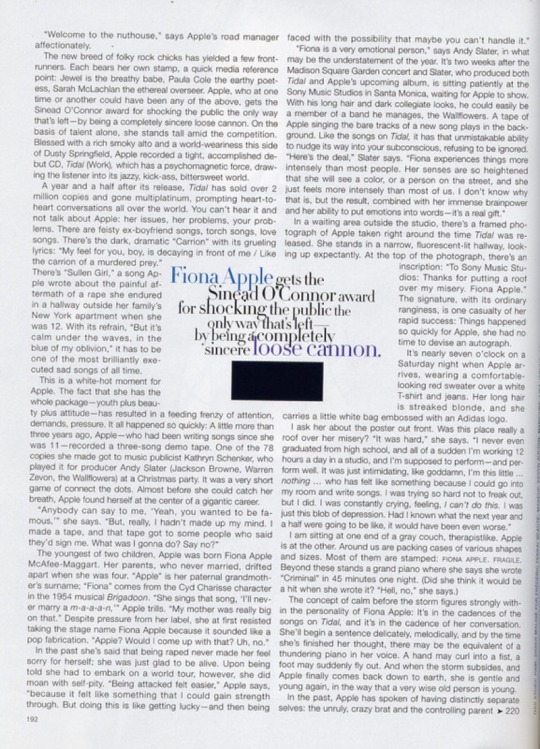 "Welcome to the nuthouse," says Apple's road manager
affectionately.
The new breed of folky rock chicks has yielded a few front-
runners. Each bears her own stamp, a quick media reference
point: Jewel is the breathy babe, Paula Cole the earthy poet-
ess, Sarah McLachlan the ethereal overseer. Apple, who at one
time or another could have been any of the above, gets the
Sinead O'Connor award for shocking the public the only way
that's left—by being a completely sincere loose cannon. On the
basis of talent alone, she stands tall amid the competition.
Blessed with a rich smoky alto and a world-weariness this side
of Dusty Springfield, Apple recorded a tight, accomplished de-
but CD, Tidal (Work), which has a psychomagnetic force, draw-
ing the listener into its jazzy, kick-ass, bittersweet world.
A year and a half after its release, Tidal has sold over 2
million copies and gone multiplatinum, prompting heart-to-
heart conversations all over the world. You can't hear it and
not talk about Apple: her issues, her problems, your prob-
lems. There are feisty ex-boyfriend songs, torch songs, love
songs. There's the dark, dramatic "Carrion" with its grueling
lyrics: "My feel for you, boy, is decaying in front of me / Like
the carrion of a murdered prey."
There's "Sullen Girl," a song Ap-
ple wrote about the painful af-
termath of a rape she endured
in a hallway outside her family's
New York apartment when she
was 12. With its refrain, "But it's
calm under the waves, in the
blue of my oblivion," it has to be
one of the most brilliantly exe-
cuted sad songs of all time.
This is a white-hot moment for
Apple. The fact that she has the
whole package—youth plus beau-
ty plus attitude—has resulted in a feeding frenzy of attention,
demands, pressure. It all happened so quickly: A little more than
three years ago, Apple—who had been writing songs since she
was 11—recorded a three-song demo tape. One of the 78
copies she made got to music publicist Kathryn Schenker, who
played it for producer Andy Slater (Jackson Browne, Warren
Zevon, the Wallflowers) at a Christmas party. It was a very short
game of connect the dots. Almost before she could catch her
breath, Apple found herself at the center of a gigantic career.
"Anybody can say to me, 'Yeah, you wanted to be fa-
mous,'" she says. "But, really, I hadn't made up my mind. I
made a tape, and that tape got to some people who said
they'd sign me. What was I gonna do? Say no?"
The youngest of two children, Apple was born Fiona Apple
McAfee-Maggart. Her parents, who never married, drifted
apart when she was four. "Apple" is her paternal grandmoth-
er's surname; "Fiona" comes from the Cyd Charisse character
in the 1954 musical Brigadoon. "She sings that song, 'I'll nev-
er marry a m-a-a-a-n,'" Apple trills. "My mother was really big
on that." Despite pressure from her label, she at first resisted
taking the stage name Fiona Apple because it sounded like a
pop fabrication. "Apple? Would I come up with that? Uh, no."
In the past she's said that being raped never made her feel
sorry for herself; she was just glad to be alive. Upon being
told she had to embark on a world tour, however, she did
moan with self-pity. "Being attacked felt easier," Apple says,
"because it felt like something that I could gain strength
through. But doing this is like getting lucky—and then being
192
Fiona Apple gets the
Sinead O'Connor award
for shocking the public the
only way that's left—
by being a completely
sincere loose cannon.
faced with the possibility that maybe you can't handle it."
"Fiona is a very emotional person," says Andy Slater, in what
may be the understatement of the year. It's two weeks after the
Madison Square Garden concert and Slater, who produced both
Tidal and Apple's upcoming album, is sitting patiently at the
Sony Music Studios in Santa Monica, waiting for Apple to show.
With his long hair and dark collegiate looks, he could easily be
a member of a band he manages, the Wallflowers. A tape of
Apple singing the bare tracks of a new song plays in the back-
ground. Like the songs on Tidal, it has that unmistakable ability
to nudge its way into your subconscious, refusing to be ignored.
"Here's the deal," Slater says. "Fiona experiences things more
intensely than most people. Her senses are so heightened
that she will see a color, or a person on the street, and she
just feels more intensely than most of us. I don't know why
that is, but the result, combined with her immense brainpower
and her ability to put emotions into words—it's a real gift."
In a waiting area outside the studio, there's a framed pho-
tograph of Apple taken right around the time Tidal was re-
leased. She stands in a narrow, fluorescent-lit hallway, look-
ing up expectantly. At the top of the photograph, there's an
inscription: "To Sony Music Stu-
dios: Thanks for putting a roof
over my misery. Fiona Apple."
The signature, with its ordinary
ranginess, is one casualty of her
rapid success: Things happened
so quickly for Apple, she had no
time to devise an autograph.
It's nearly seven o'clock on a
Saturday night when Apple ar-
rives, wearing a comfortable-
looking red sweater over a white
T-shirt and jeans. Her long hair
is streaked blonde, and she
carries a little white bag embossed with an Adidas logo.
I ask her about the poster out front. Was this place really a
roof over her misery? "It was hard," she says. "I never even
graduated from high school, and all of a sudden I'm working 12
hours a day in a studio, and I'm supposed to perform—and per-
form well. It was just intimidating, like, goddamn, I'm this little ...
nothing ... who has felt like something because I could go into
my room and write songs. I was trying so hard not to freak out,
but I did. I was constantly crying, feeling, I can't do this. I was
just this blob of depression. Had I known what the next year and
a half were going to be like, it would have been even worse."
I am sitting at one end of a gray couch, therapistlike. Apple
is at the other. Around us are packing cases of various shapes
and sizes. Most of them are stamped: FIONA APPLE. FRAGILE.
Beyond these stands a grand piano where she says she wrote
"Criminal" in 45 minutes one night. (Did she think it would be
a hit when she wrote it? "Hell, no," she says.)
The concept of calm before the storm figures strongly with-
in the personality of Fiona Apple: It's in the cadences of the
songs on Tidal, and it's in the cadence of her conversation.
She'll begin a sentence delicately, melodically, and by the time
she's finished her thought, there may be the equivalent of a
thundering piano in her voice. A hand may curl into a fist, a
foot may suddenly fly out. And when the storm subsides, and
Apple finally comes back down to earth, she is gentle and
young again, in the way that a very wise old person is young.
In the past, Apple has spoken of having distinctly separate
selves: the unruly, crazy brat and the controlling parent ➤ 220